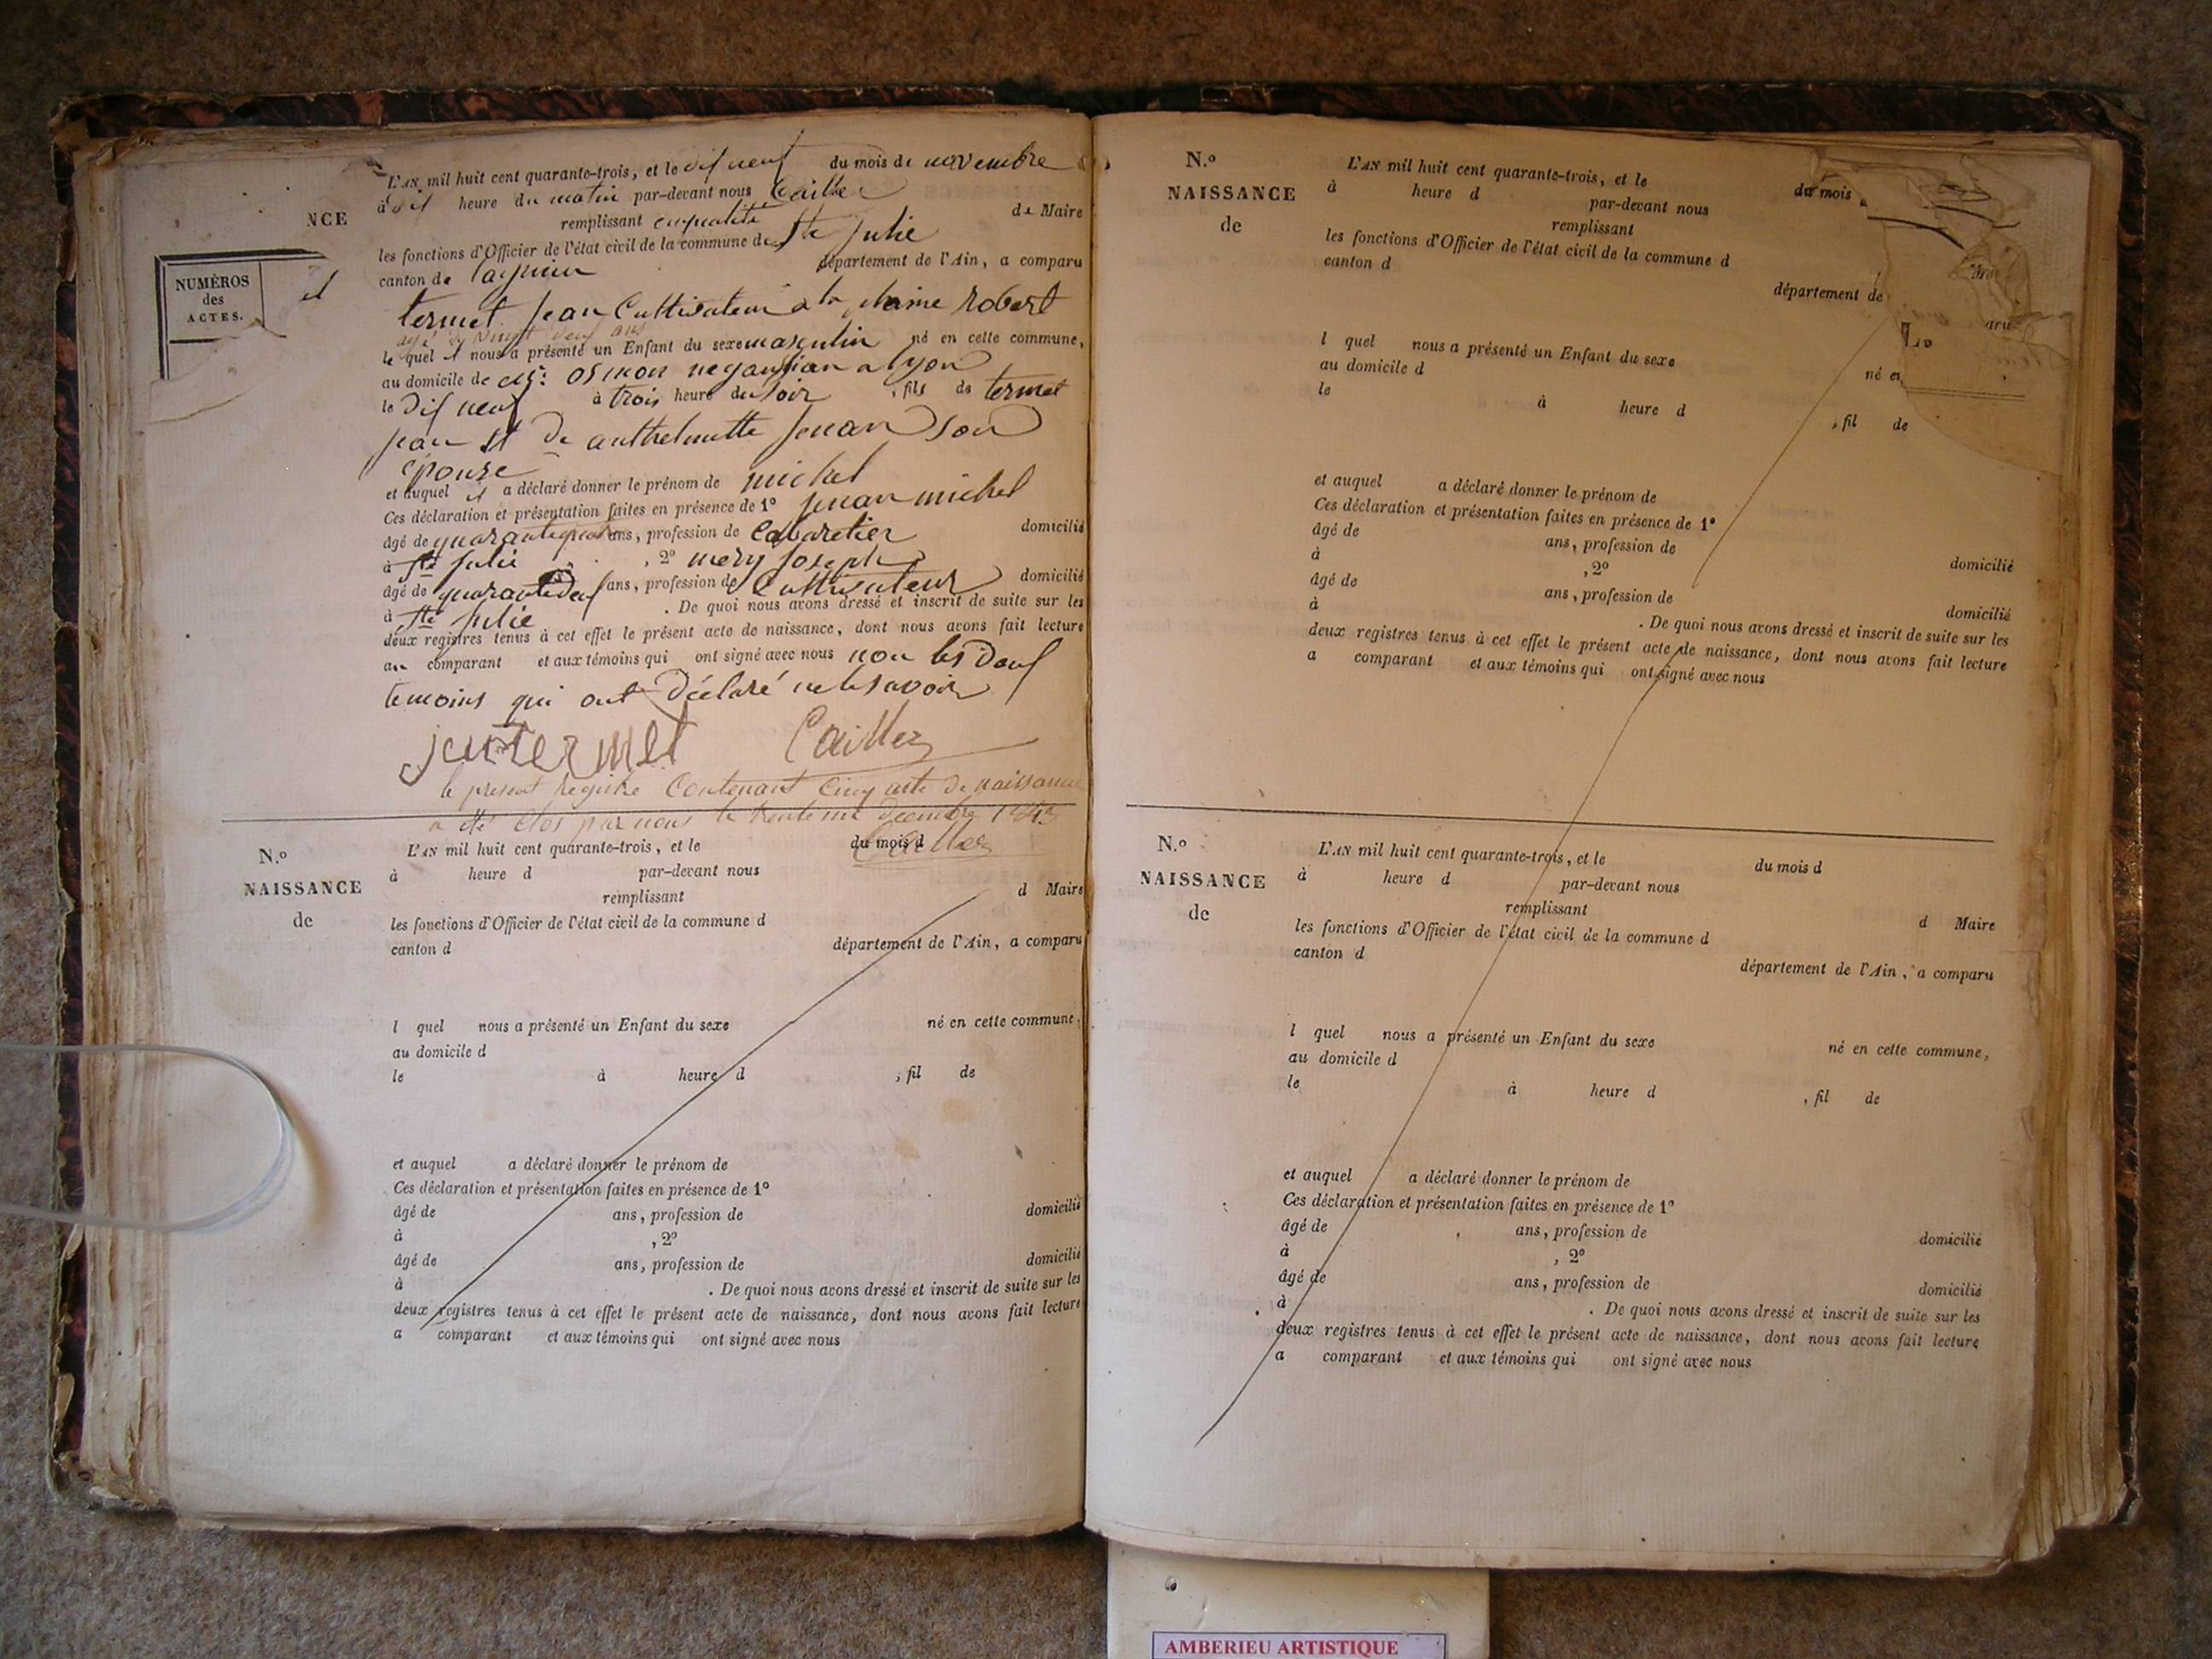 L'AN mil huit cent quarante-trois, et le dix neuf du mois de novembre
à dix heure du matin par-devant nous Caillier
NCE
remplissant enqualité de Maire
les fonctions d'Officier de l'état civil de la commune de Ste Julie
canton de lagnieu département de l'Ain, a comparu
NUMÉROS
des
ACTES.
termet jean Cultivateur a la chaine Robert
agé de vingt neuf ans
le quel il nous a présenté un Enfant du sexe masculin né en cette commune,
au domicile de osmon negossian a lyon
le dix neuf à trois heure du soir, fils de termet
jean et de anthelmette juuan son
epouse
et auquel il a déclaré donner le prénom de michel
Ces déclaration et présentation faites en présence de 1º juuan michel
âgé de ans, profession de Cabaretier domicilié
à Ste Julie, 2º mery Joseph
âgé de ans, profession de Cultivateur domicilié
à Ste Julie. De quoi nous avons dressé et inscrit de suite sur les
deux registres tenus à cet effet le présent acte de naissance, dont nous avons fait lecture
au comparant et aux témoins qui ont signé avec nous non les deux
temoins qui ont déclaré ne le savoir
jean termet Caillier
le present registre Contenant Cinq acte de naissance
a été clos par nous le trente un decembre 1843
Caillier
N.º
NAISSANCE
de
L'AN mil huit cent quarante-trois, et le du mois d
à heure d par-devant nous
remplissant d Maire
les fonctions d'Officier de l'état civil de la commune d
canton d département de l'Ain, a comparu
l quel nous a présenté un Enfant du sexe né en cette commune,
au domicile d
le à heure d, fil de
et auquel a déclaré donner le prénom de
Ces déclaration et présentation faites en présence de 1º
âgé de ans, profession de domicilié
à, 2º
âgé de ans, profession de domicilié
à. De quoi nous avons dressé et inscrit de suite sur les
deux registres tenus à cet effet le présent acte de naissance, dont nous avons fait lecture
a comparant et aux témoins qui ont signé avec nous
N.º
NAISSANCE
de
L'AN mil huit cent quarante-trois, et le du mois
à heure d par-devant nous
remplissant
les fonctions d'Officier de l'état civil de la commune d
canton d département de
l quel nous a présenté un Enfant du sexe né en
au domicile d
le à heure d, fil de
et auquel a déclaré donner le prénom de
Ces déclaration et présentation faites en présence de 1º
âgé de ans, profession de domicilié
à, 2º
âgé de ans, profession de domicilié
à. De quoi nous avons dressé et inscrit de suite sur les
deux registres tenus à cet effet le présent acte de naissance, dont nous avons fait lecture
a comparant et aux témoins qui ont signé avec nous
N.º
NAISSANCE
de
L'AN mil huit cent quarante-trois, et le du mois d
à heure d par-devant nous
remplissant d Maire
les fonctions d'Officier de l'état civil de la commune d
canton d département de l'Ain, a comparu
l quel nous a présenté un Enfant du sexe né en cette commune,
au domicile d
le à heure d, fil de
et auquel a déclaré donner le prénom de
Ces déclaration et présentation faites en présence de 1º
âgé de ans, profession de domicilié
à, 2º
âgé de ans, profession de domicilié
à. De quoi nous avons dressé et inscrit de suite sur les
deux registres tenus à cet effet le présent acte de naissance, dont nous avons fait lecture
a comparant et aux témoins qui ont signé avec nous
AMBERIEU ARTISTIQUE